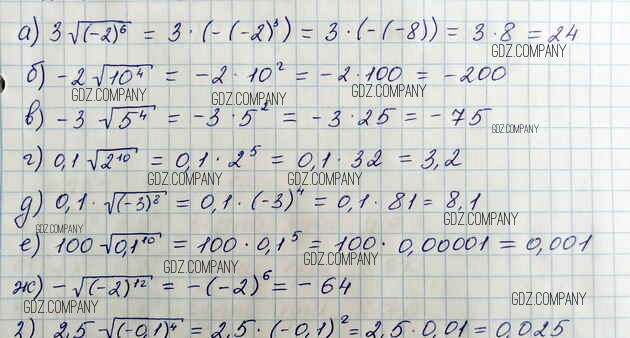 а) 3√(-2)⁶ = 3 · (-(-2)³) = 3 · (-(-8)) = 3 · 8 = 24
GDZ.COMPANY
б) -2 √10⁴ = -2 · 10² = -2 · 100 = -200
GDZ.COMPANY GDZ.COMPANY GDZ.COMPANY
в) -3 √5⁴ = -3 · 5² = -3 · 25 = -75
GDZ.COMPANY
г) 0,1 √2¹⁰ = 0,1 · 2⁵ = 0,1 · 32 = 3,2
GDZ.COMPANY GDZ.COMPANY
д) 0,1 · √(-3)⁸ = 0,1 · (-3)⁴ = 0,1 · 81 = 8,1
GDZ.COMPANY GDZ.COMPANY
е) 100 √0,1¹⁰ = 100 · 0,1⁵ = 100 · 0,00001 = 0,001
GDZ.COMPANY GDZ.COMPANY
ж) -√(-2)¹² = -(-2)⁶ = -64
GDZ.COMPANY GDZ.COMPANY
з) 2,5 √(-0,1)⁴ = 2,5 · (-0,1)² = 2,5 · 0,01 = 0,025